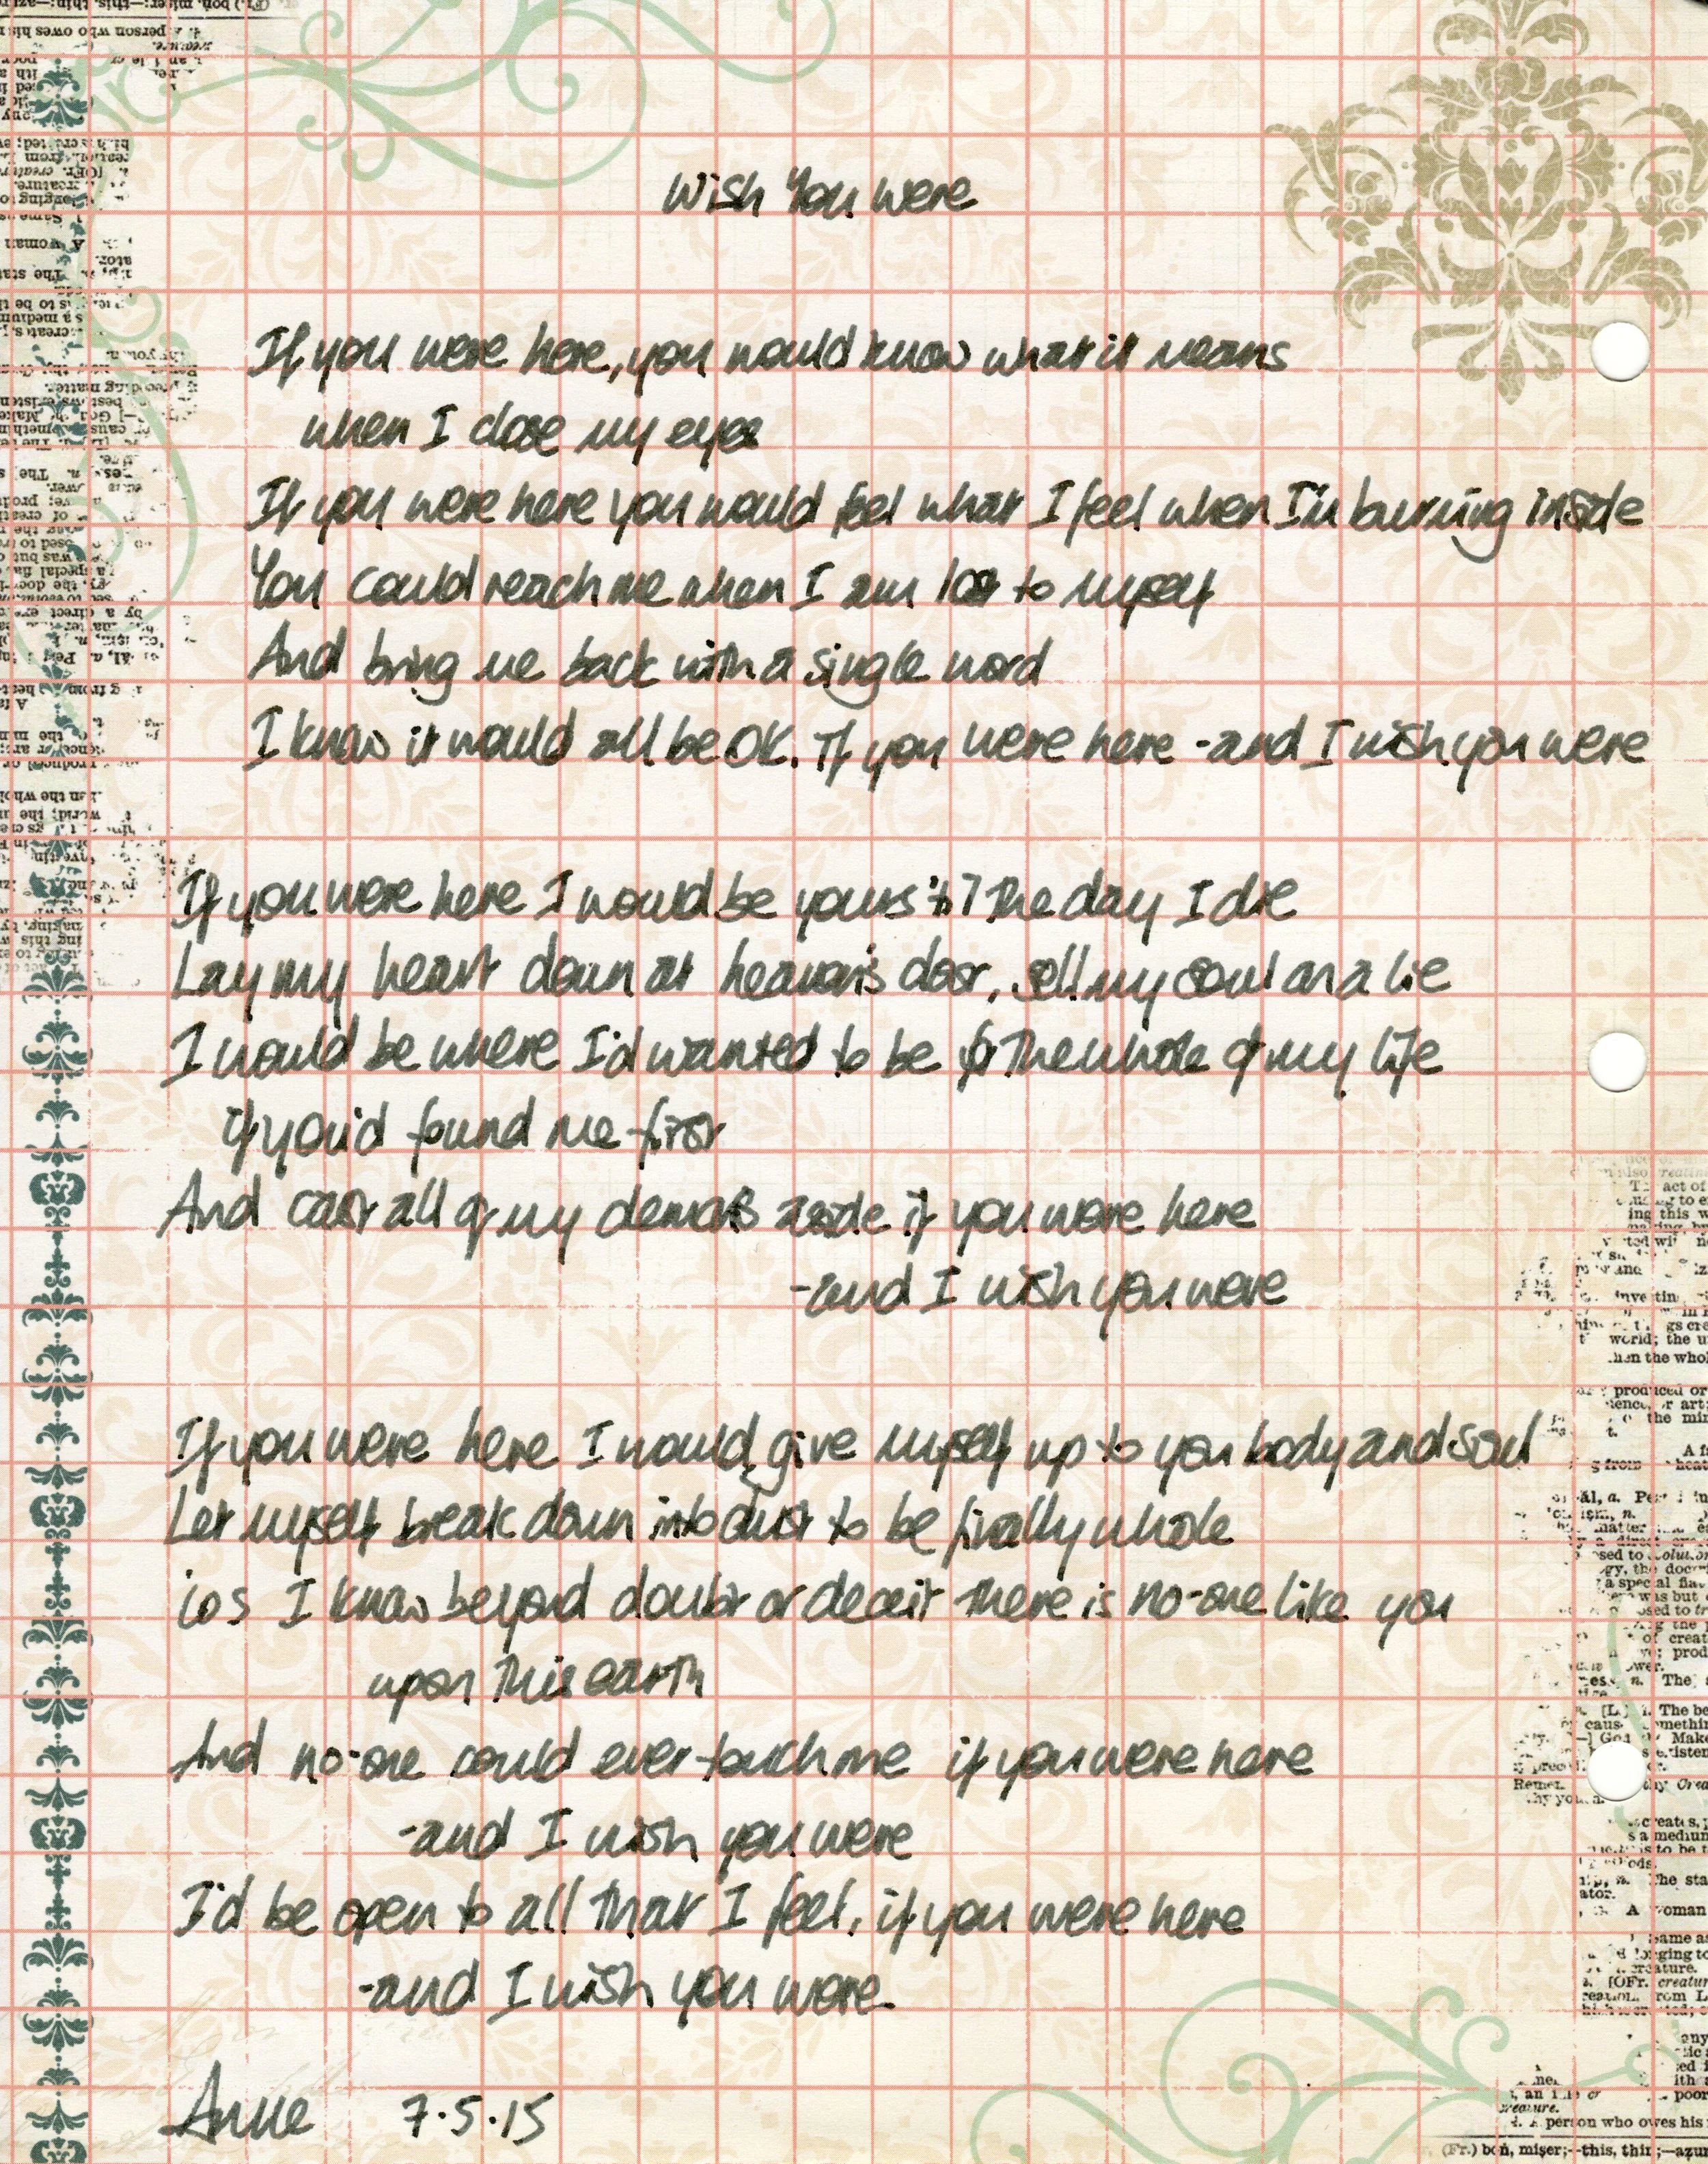 Wish You were
If you were here, you would know what it means
when I close my eyes
If you were here you would feel what I feel when I'm burning inside
You could reach me when I am lost to myself
And bring me back with a single word
I know it would all be OK. If you were here - and I wish you were
If you were here I would be yours 'til the day I die
Lay my heart down at heaven's door, sell my soul on a lie
I would be where I'd wanted to be for the whole of my life
if you'd found me first
And cast all of my demons aside if you were here
- and I wish you were
If you were here I would give myself up to you body and soul
Let myself break down into dust to be finally whole
'cos I know beyond doubt or deceit there is no-one like you
upon this earth
And no-one could ever touch me if you were here
- and I wish you were
I'd be open to all that I feel, if you were here
- and I wish you were.
Anne 7.5.15